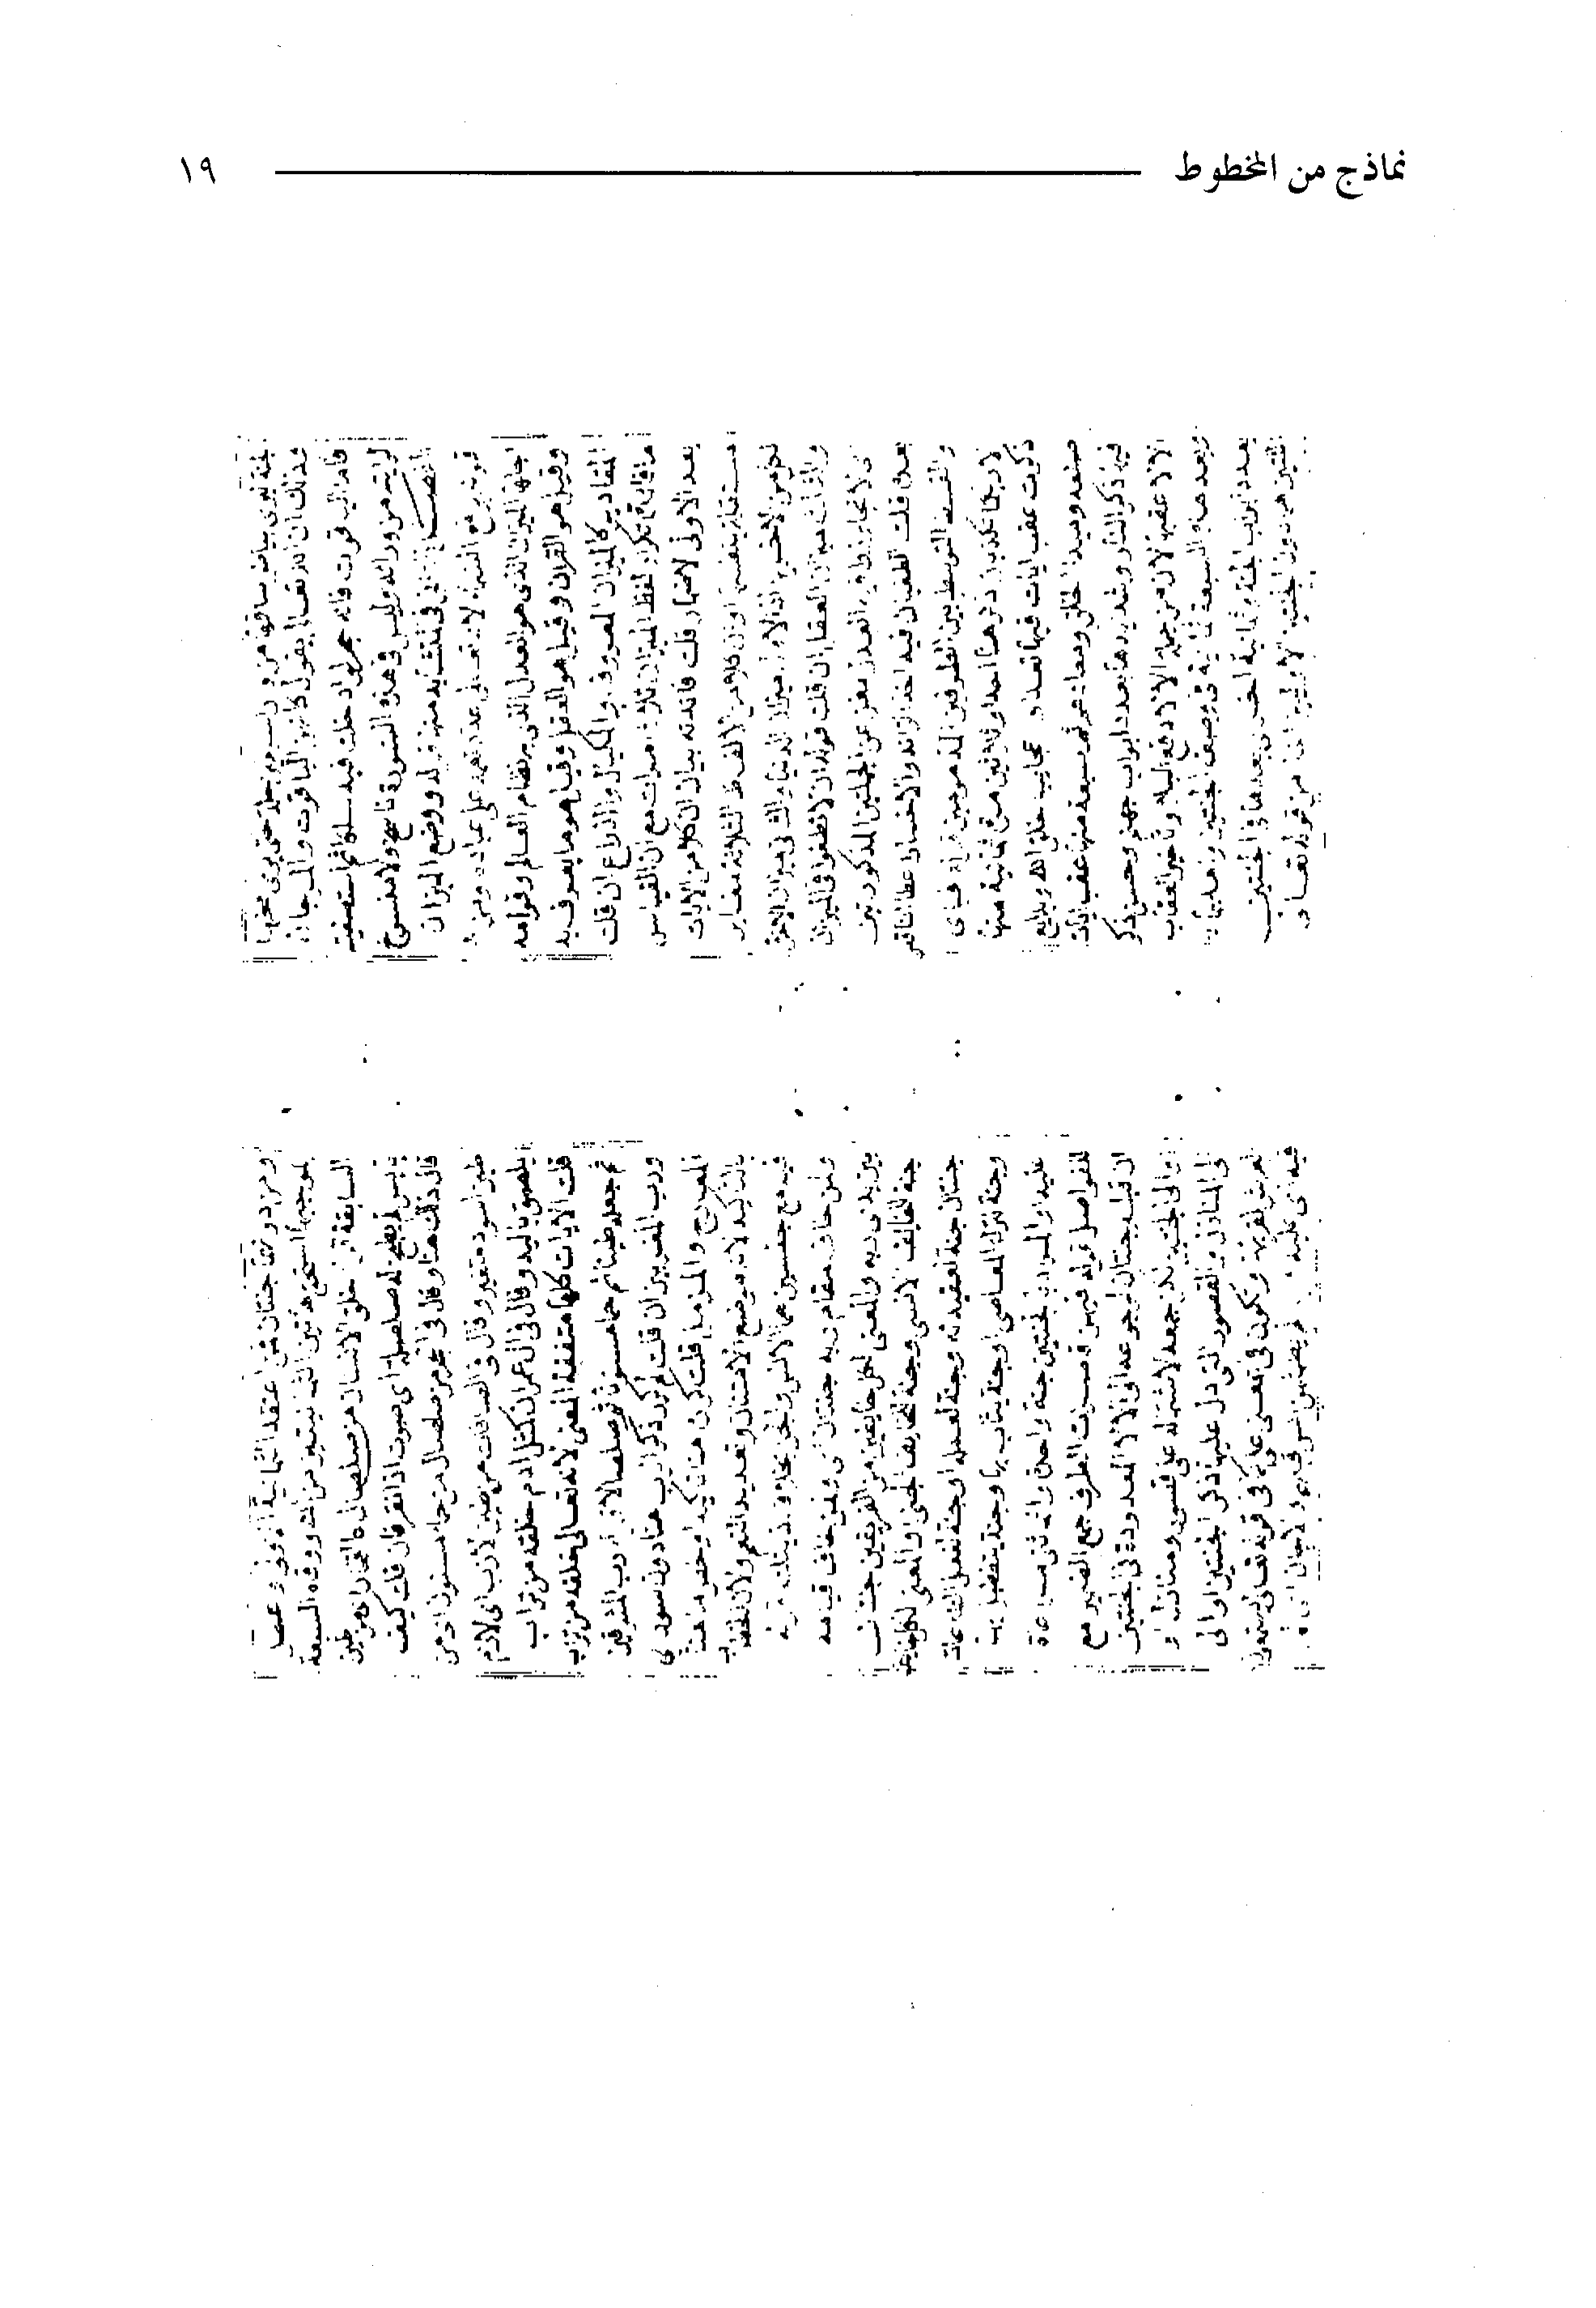 نماذج من المخطوط ١٩
بياض ساقها من وراء سبعين حلة حتى يرى مخها
وذلك ان الله تعالى يقول كانهن الياقوت والمرجان
فاما الياقوت فانه حجر لو ادخلت فيه سلكا ثم استصفيته
لرايته من ورائه وليس في هذه السورة ناسخ ولا منسوخ
قوله ووضع الميزان
قرنه برفع السماء لانه تعالى عدد نعمه على عباده ومن
اجلها الميزان الذي هو العدل الذي به نظام العالم وقوامه
وقيل هو القران وقيل هو العقل وقيل هو ما يعرف به
المقادير كالميزان المعروف والمكيال والذراع ان قلت
ما فائدة تكرار لفظ الميزان ثلاث مرات مع ان القياس
بعد الاولى الاضمار قلت فائدته بيان ان كلا من الايات
مستقلة بنفسها او ان كلا من الالفاظ الثلاثة مغاير
لكل من الاخرين اذ الاول ميزان الدنيا والثاني ميزان الاخرة
والثالث ميزان العقل ان قلت قوله ان لا تطغوا في الميزان
اي لا تجاوزوا فيه العدل مغن عن الجملتين المذكورتين
بعده قلت الطغيان فيه اخذ الزائد والاخسار اعطا الناقص
والقسط التوسط بين الطرفين المذمومين قوله فباي
الا ربكما تكذبان ذكرها احدا وثلاثين مرة ثمانية منها
ذكرت عقب ايات فيها تعداد عجايب خلق الله وبدائع
صنعه ومبدا الخلق ومعادهم ثم سبعة منها عقب ايات
فيها ذكر النار وشدايدها بعدد ابواب جهنم وحسن ذكر
الالا عقبها لان من جملة الالا دفع البلا وتاخير العقاب
وبعد هذه السبعة ثمانية في وصف الجنتين واهلهما
بعدد ابواب الجنة وثمانية اخرى بعدها في الجنتين
اللتين هما دون الجنتين الاوليين اخذا من قوله تعالى
ومن دونهما جنتان فمن اعتقد الثمانية الاولى وعمل
بموجبها استحق هاتين الثمانيتين من الله ووقاه السبعة
السابقة قوله خلق الانسان من صلصال كالفخار اي من طين
يابس لم يطبخ له صلصلة اي صوت اذا نقر فان قلت كيف
قال ذلك هنا وقال في الحجر من صلصال من حما مسنون اي من
طين اسود متغير وقال في الصافات من طين لازب اي لازم
يلصق باليد وقال في ال عمران كمثل ادم خلقه من تراب
قلت الايات كلها متفقة المعنى لانه تعالى خلقه من تراب
ثم جعله طينا ثم حما مسنونا ثم صلصالا قوله رب المشرقين
ورب المغربين ان قلت لم كرر ذكر الرب هنا دون سورتي
المعارج والمزمل قلت كرره هنا تاكيدا وخص ما هنا
بالتاكيد لانه موضع الامتنان وتعديد النعم ولان الخطاب
فيه مع جنسين هما الانس والجن بخلاف ذينك قوله
ولمن خاف مقام ربه جنتان اي ولمن خاف قيامه
بين يدي ربه والمعنى لكل خايفين من الفريقين جنتان
جنة للخايف الانسي وجنة للخايف الجني او المعنى لكل خايف
جنتان جنة لعقيدته وجنة لعمله او جنة لفعل الطاعات
وجنة لترك المعاصي او جنة يثاب بها وجنة يتفضل بها
عليه او المراد بالجنتين جنة واحدة وانما ثنى مراعاة
للفواصل قوله فيهن قاصرات الطرف جمع الضمير مع
ان قبله جنتان لرجوعه الى الالا المعدودة في الجنتين
او الى الجنتين لكن جمعه لاشتماله على قصور ومنازل او
الى المنازل والقصور التي دل عليها ذكر الجنتين او الى
الفرش لقربها وتكون في بمعنى على كما في قوله تعالى